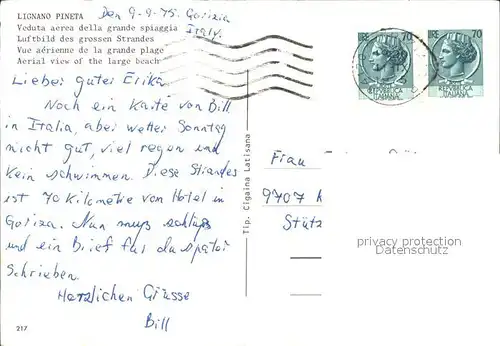 LIGNANO PINETA
Veduta aerea della grande spiaggia
Luftbild des grossen Strandes
Vue aérienne de la grande plage
Aerial view of the large beach
Den 9-9-75. Gorizia
Italy.
Lieber guter Erika.
Noch ein Karte von Bill
in Italia, aber wetter Sonntag
nicht gut, viel regen und
kein schwimmen. Diese Strandes
ist 70 Kilometer von Hotel in
Goriza. Nun muss schluss
und ein Brief für du später
Schrieben.
Herzlichen Grüsse
Bill
217
Tip. Cigaina Latisana
RE 70
REPUBBLICA
ITALIANA
RE 70
REPUBBLICA
ITALIANA
Frau
9707
Stütz
privacy protection
Datenschutz